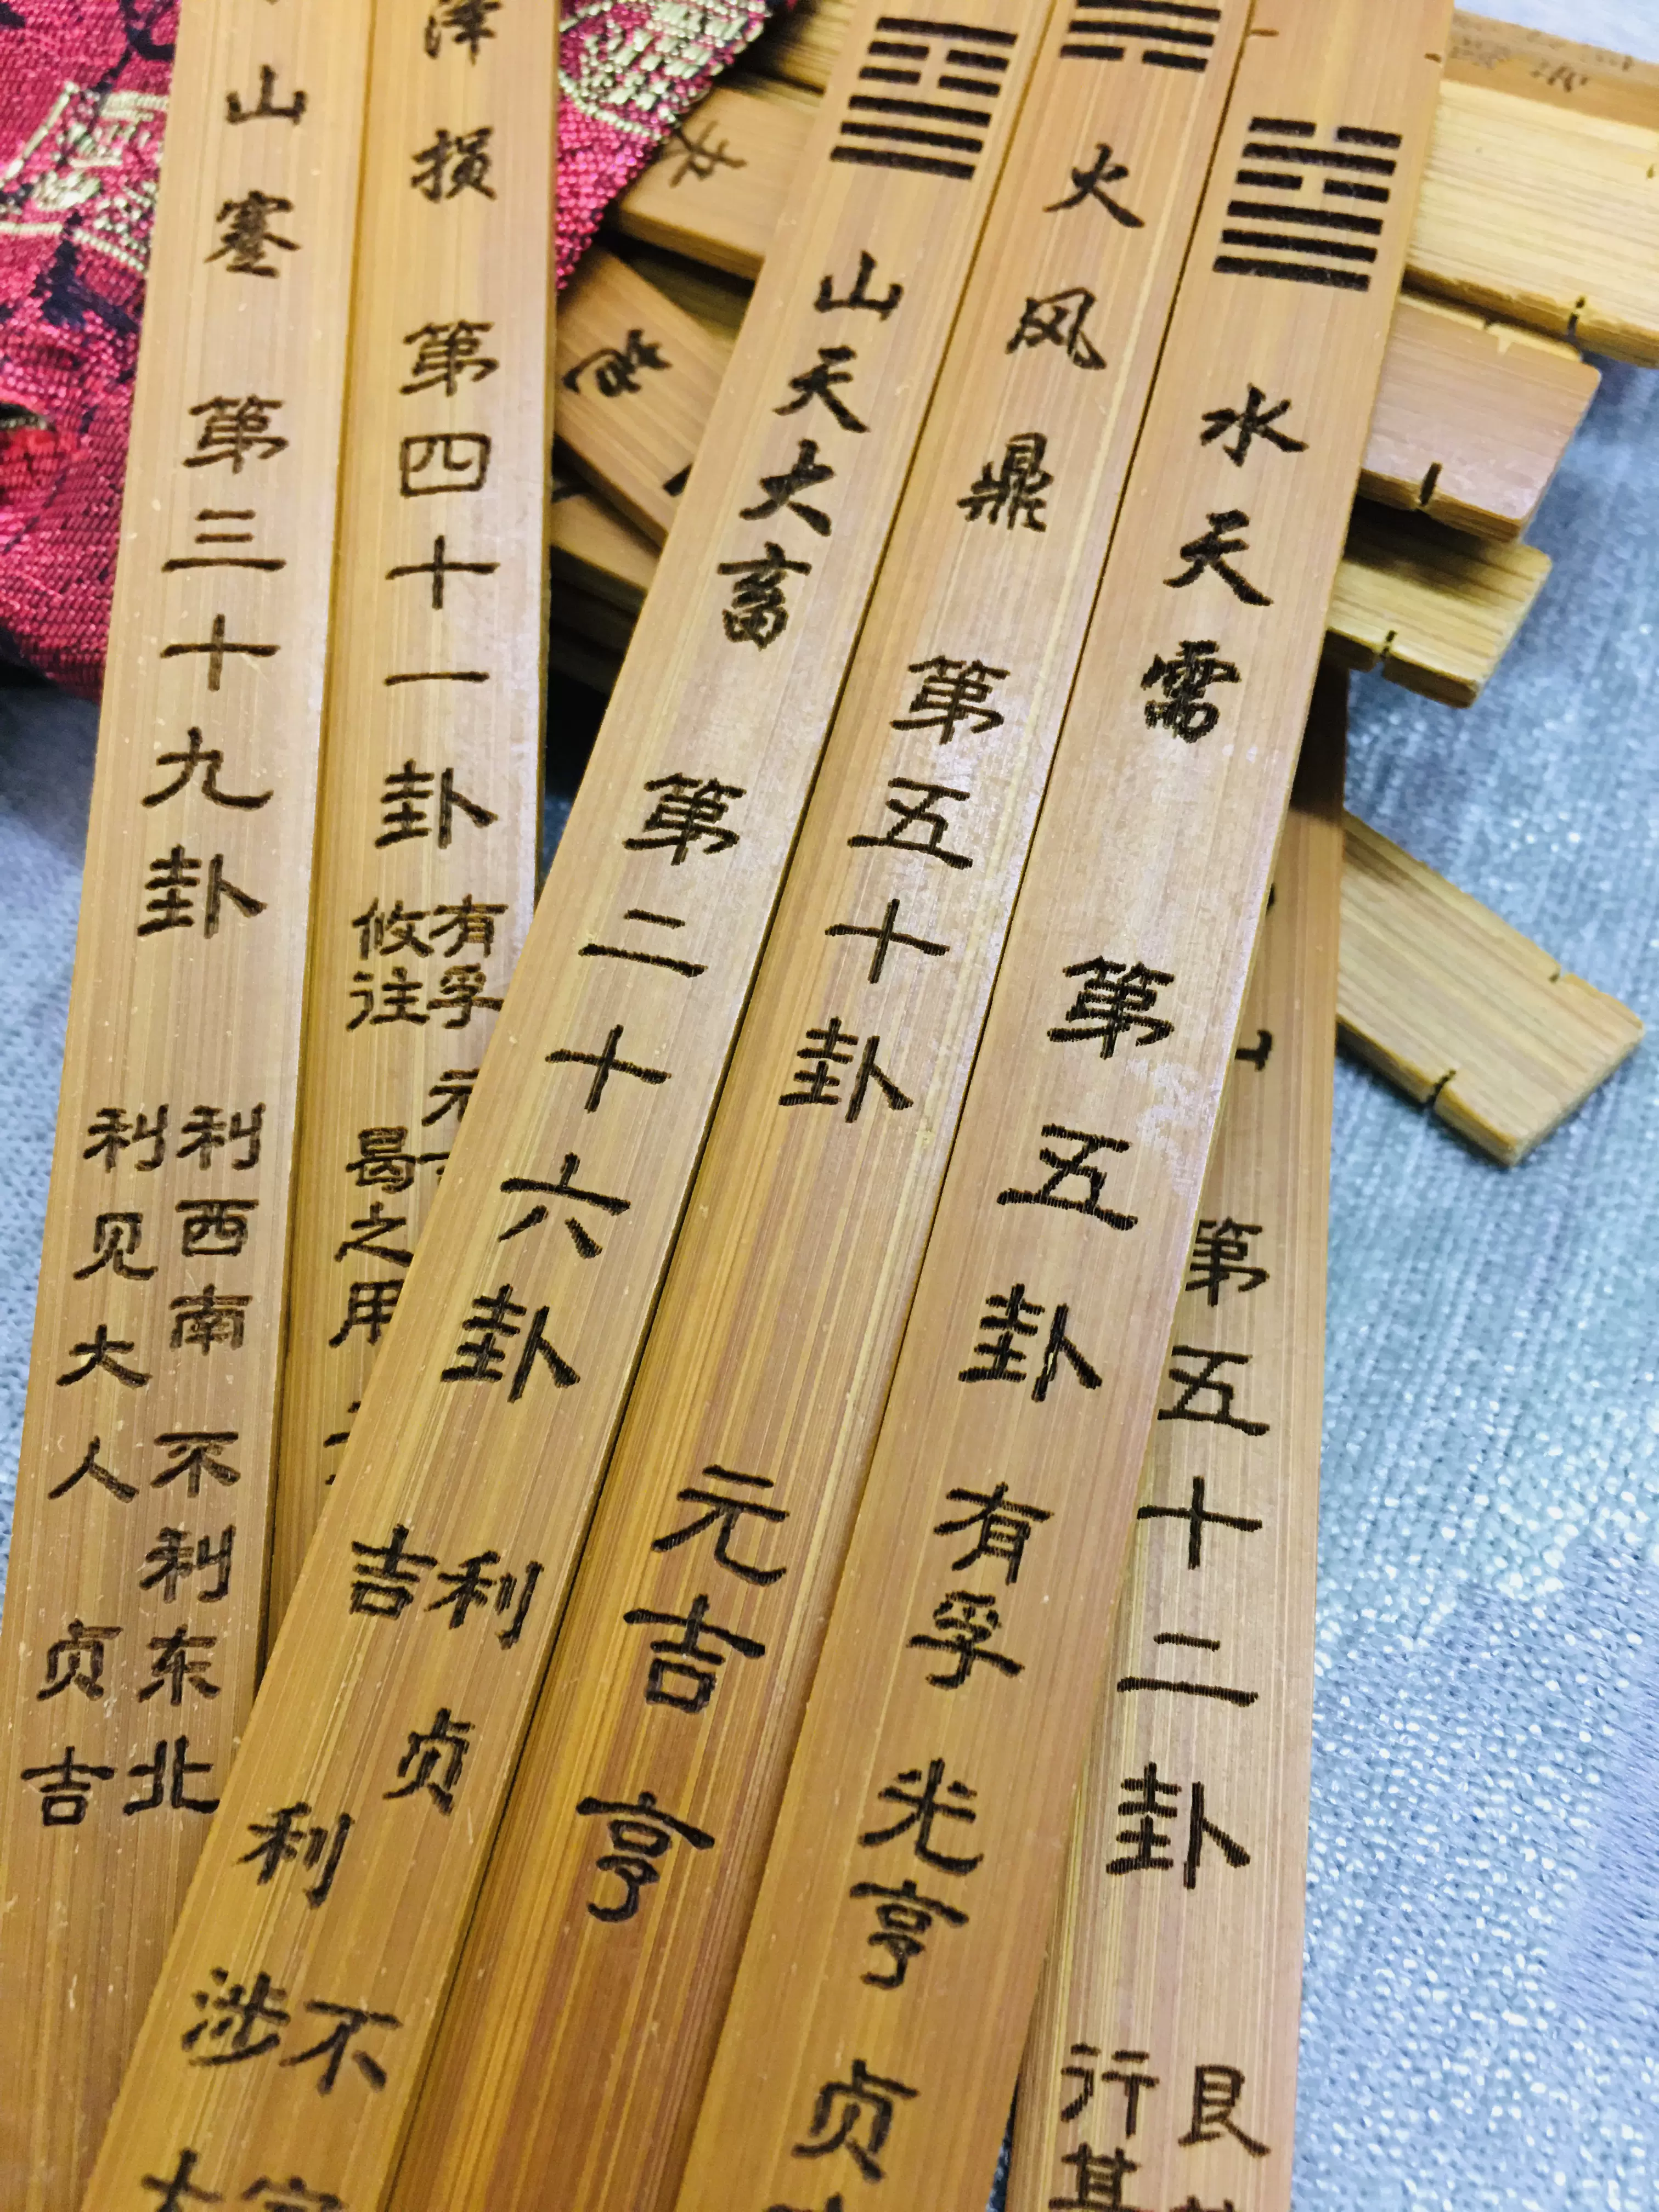 山蹇 第三十九卦
利西南 不利东北
利见大人 贞吉
泽损 第四十一卦
有孚 元
攸往 曷之用
山天大畜 第二十六卦
利贞 不
吉 利涉
火风鼎 第五十卦
元吉 亨
水天需 第五卦
有孚 光亨 贞
第五十二卦
艮
行其